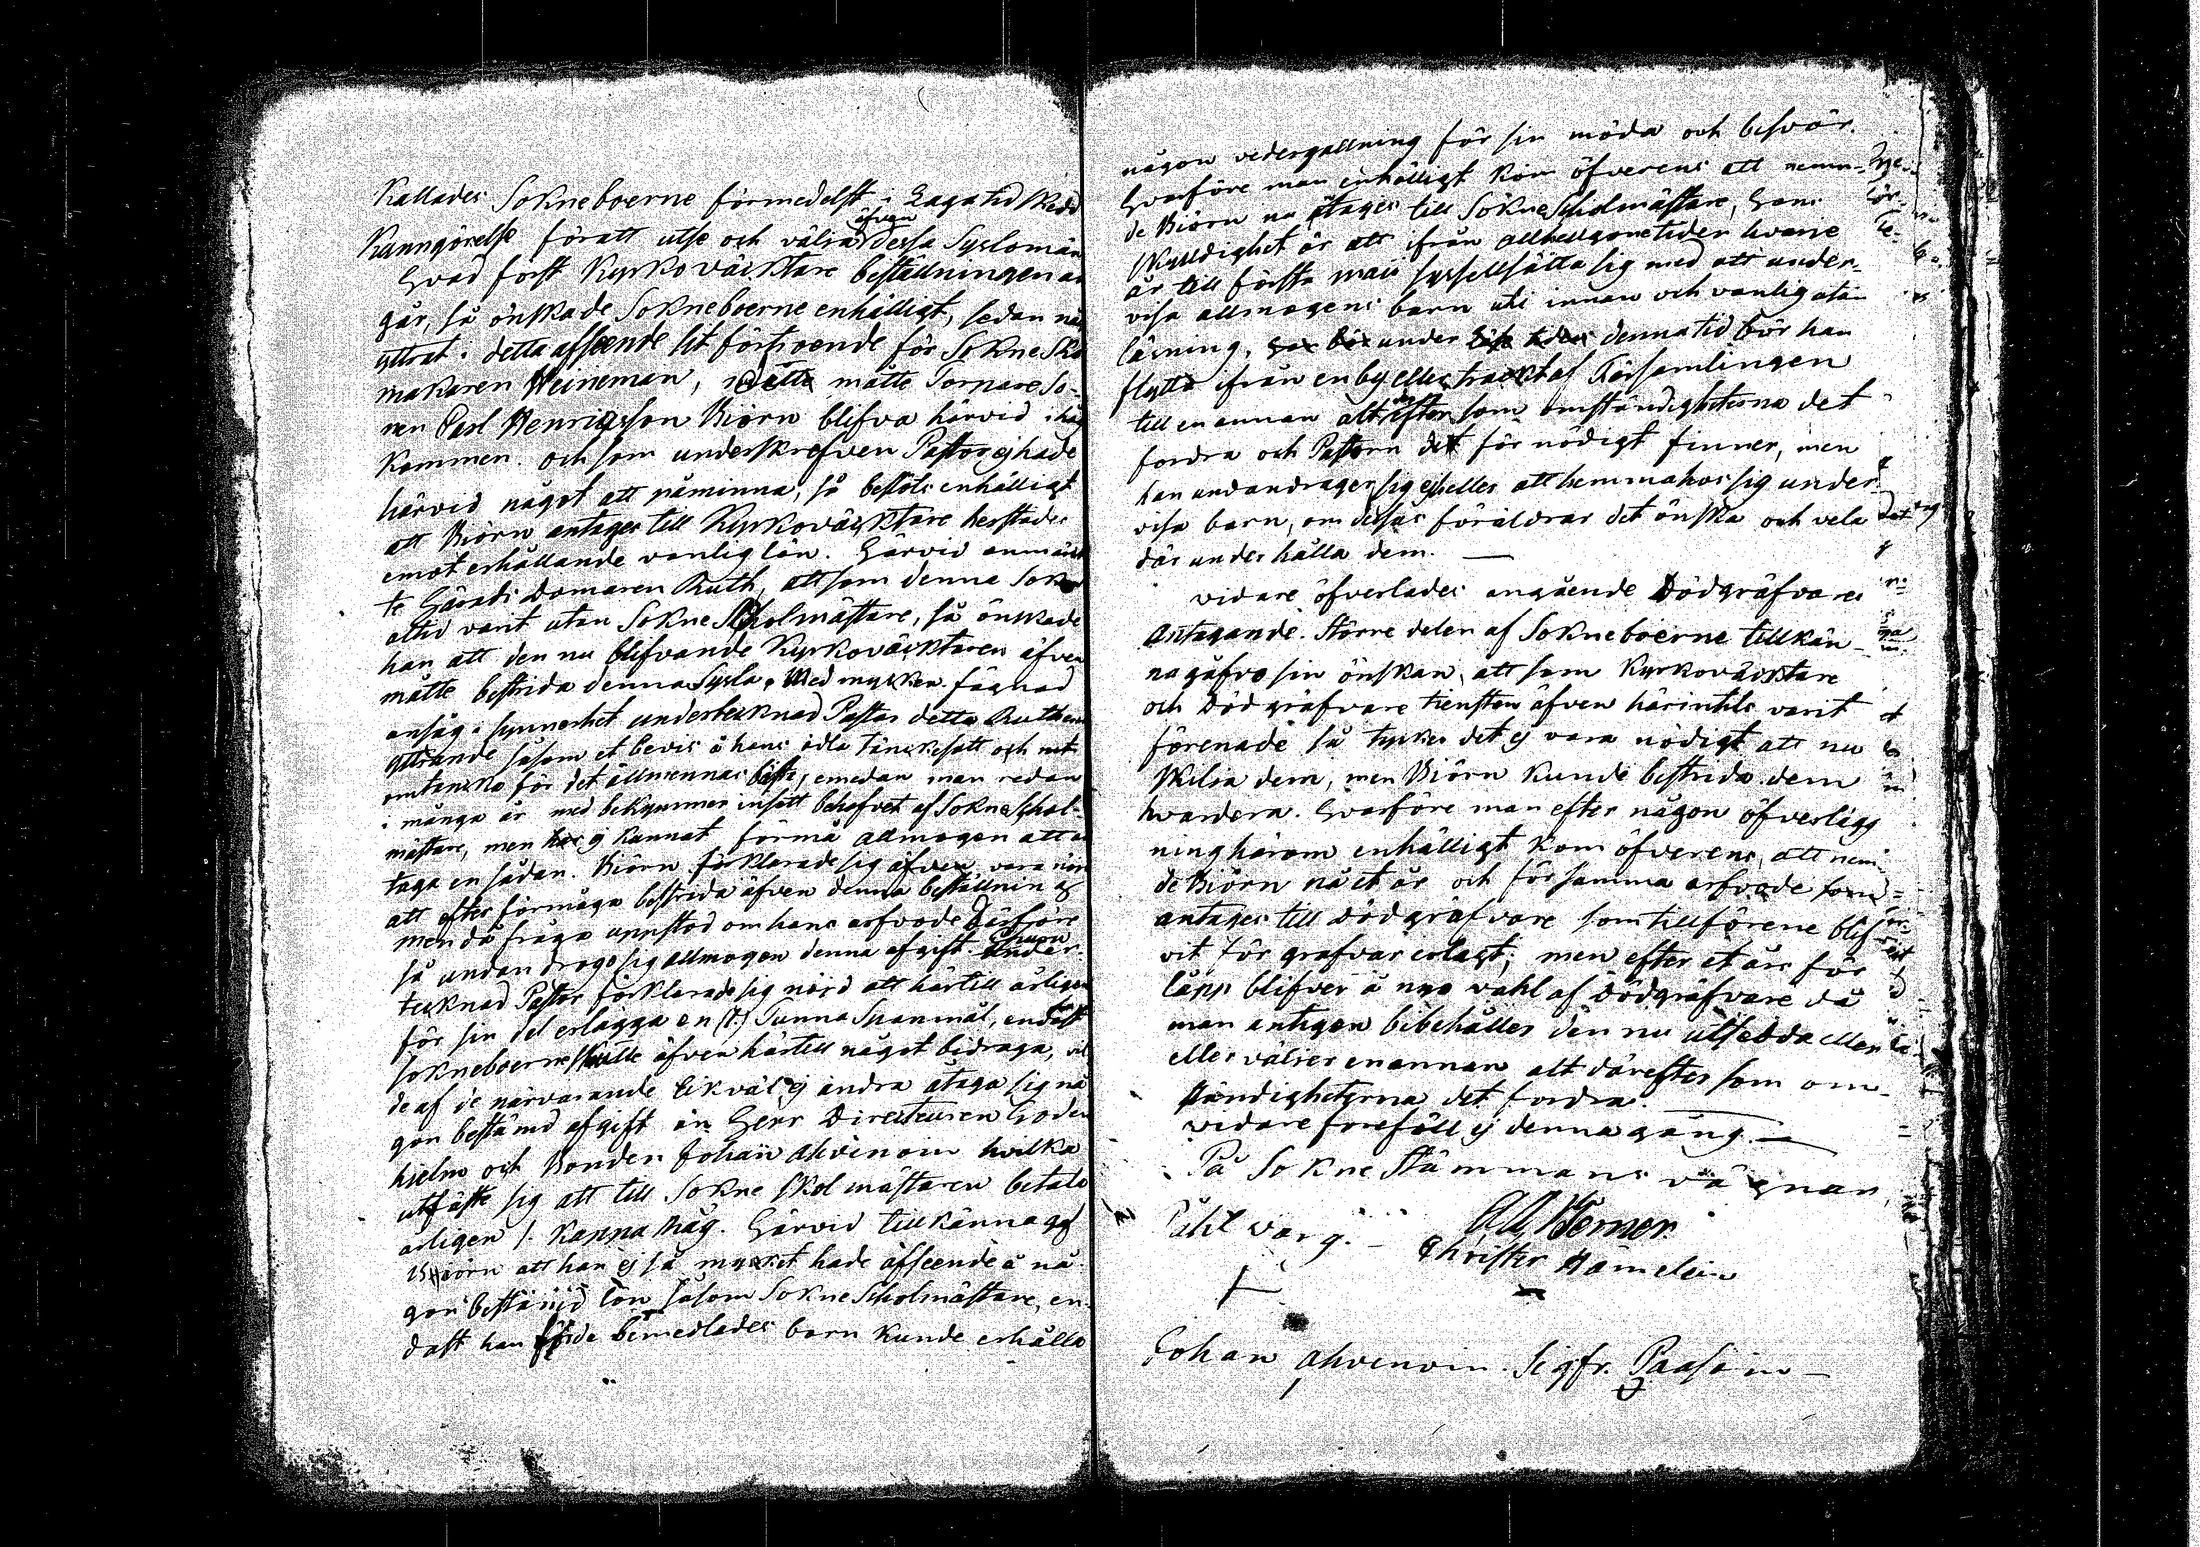 Kallades Sokneboerne förmedelst i Laga tid skedd
Kunngörelse för att utse och välja äfven dessa Syslomän
Hvad först Kyrkoväcktare beställningen an
går, så önskade Sokneboerne enhälligt, sedan någ
yttrat i detta afseende sit förtroende för Sokne Sko
makaren Heineman, måtte Torpare So-
nen Carl Henricsson Biörn blifva härvid i håg
kommen. och som underskrefven Pastor ej hade
härvid något att påminna, så beslöts enhälligt
att Biörn antages till Kyrkoväcktare härstädes
emot erhållande vanlig lön. Härvid anmärk
te Härads Domaren Ruth, att som denna Sokn
altid varit utan Sokne Scholmästare, så önskade
han att den nu blifvande Kyrkovärcktaren äfven
måtte bestrida denna Sysla. Med mycken fägnad
ansåg i synnerhet undertecknad Pastor detta Ruthens
yttrande såsom et bevis å hans ädla tänckesätt och nit
omtancka för det allmennas bästa, emedan man redan
i många år med bekymmer insett behofvet af Sokne Schol-
mästare, men har ej kunnat förmå allmogen att an
taga en sådan. Biörn förklarade sig äfven vara nöjd
att efter förmåga bestrida äfven denna beställning
men då fråga uppstod om hans arfvode därföre
så undandrogo sig allmogen denna afgift ehuru under-
tecknad Pastor förklarade sig nöjd att härtill årligen
för sin del erlägga en (1.) Tunna Spanmål, endast
sokneboerne skulle äfven härtill något bidraga, vil
de af de närvarande likväl ej andra åtaga sig nå
gon bestämd afgift än Herr Directeuren Groden
hielm och Bonden Johan Ahvenain hvilka
utfäste sig att till Sokne Skolmästaren betala
årligen 1. Kappa Råg. Härvid tillkännagaf
Biörn att han ej så mycket hade afseende å nå
gon bestämd lön såsom Sokne Scholmästare, en-
dast han för de bemedlades barn kunde erhålla
någon vedergällning för sin möda och besvär.
Hvarföre man enhälligt kom öfverens att nemn-
de Biörn nu antages till Sokne Scholmästare, Hans
skyldighet är att ifrån allhelgonetiden hvarje
år till första maii sysselsätta sig med att under-
visa allmogens barn uti innan och vanlig utan
läsning, under denna tid bör han
flytta ifrån en by eller trackt af Församlingen
till en annan alt efter som omständigheterna det
fordra och Pastorn det för nödigt finner, men
han undandrager sig ej heller att hemma hos sig under
visa barn, om dessas föräldrar det önska och vela
där underhålla dem. —
vidare öfverlades angående Dödgräfvares
antagande. Större delen af Sokneboerne tillkän-
nagåfvo sin önskan, att som Kyrkoväcktare
och Dödgräfvare tiensten äfven härintils varit
förenade så tyckes det ej vara nödigt att nu
skilia dem, men Biörn kunde bestrida dem
hvardera. Hvarföre man efter någon öfverlägg
ning härom enhälligt kom öfverens, att nemn
de Biörn nu et år och för samma arfvode som
antages till Dödgräfvare som tillförene blif
vit för grafvar erlagt; men efter et års för
lopp blifver å nyo vahl af Dödgräfvare då
man antigen bibehåller den nu utsedda eller
eller väljer en annan alt därefter som om-
ständigheterna det fordra.
vidare föreföll ej denna gång. —
På Sokne Stämmans vägnar
Pihl varg. A A Werner
Christer Hämeläin
Johan Ahvenain. Sigfr. Paasoin —